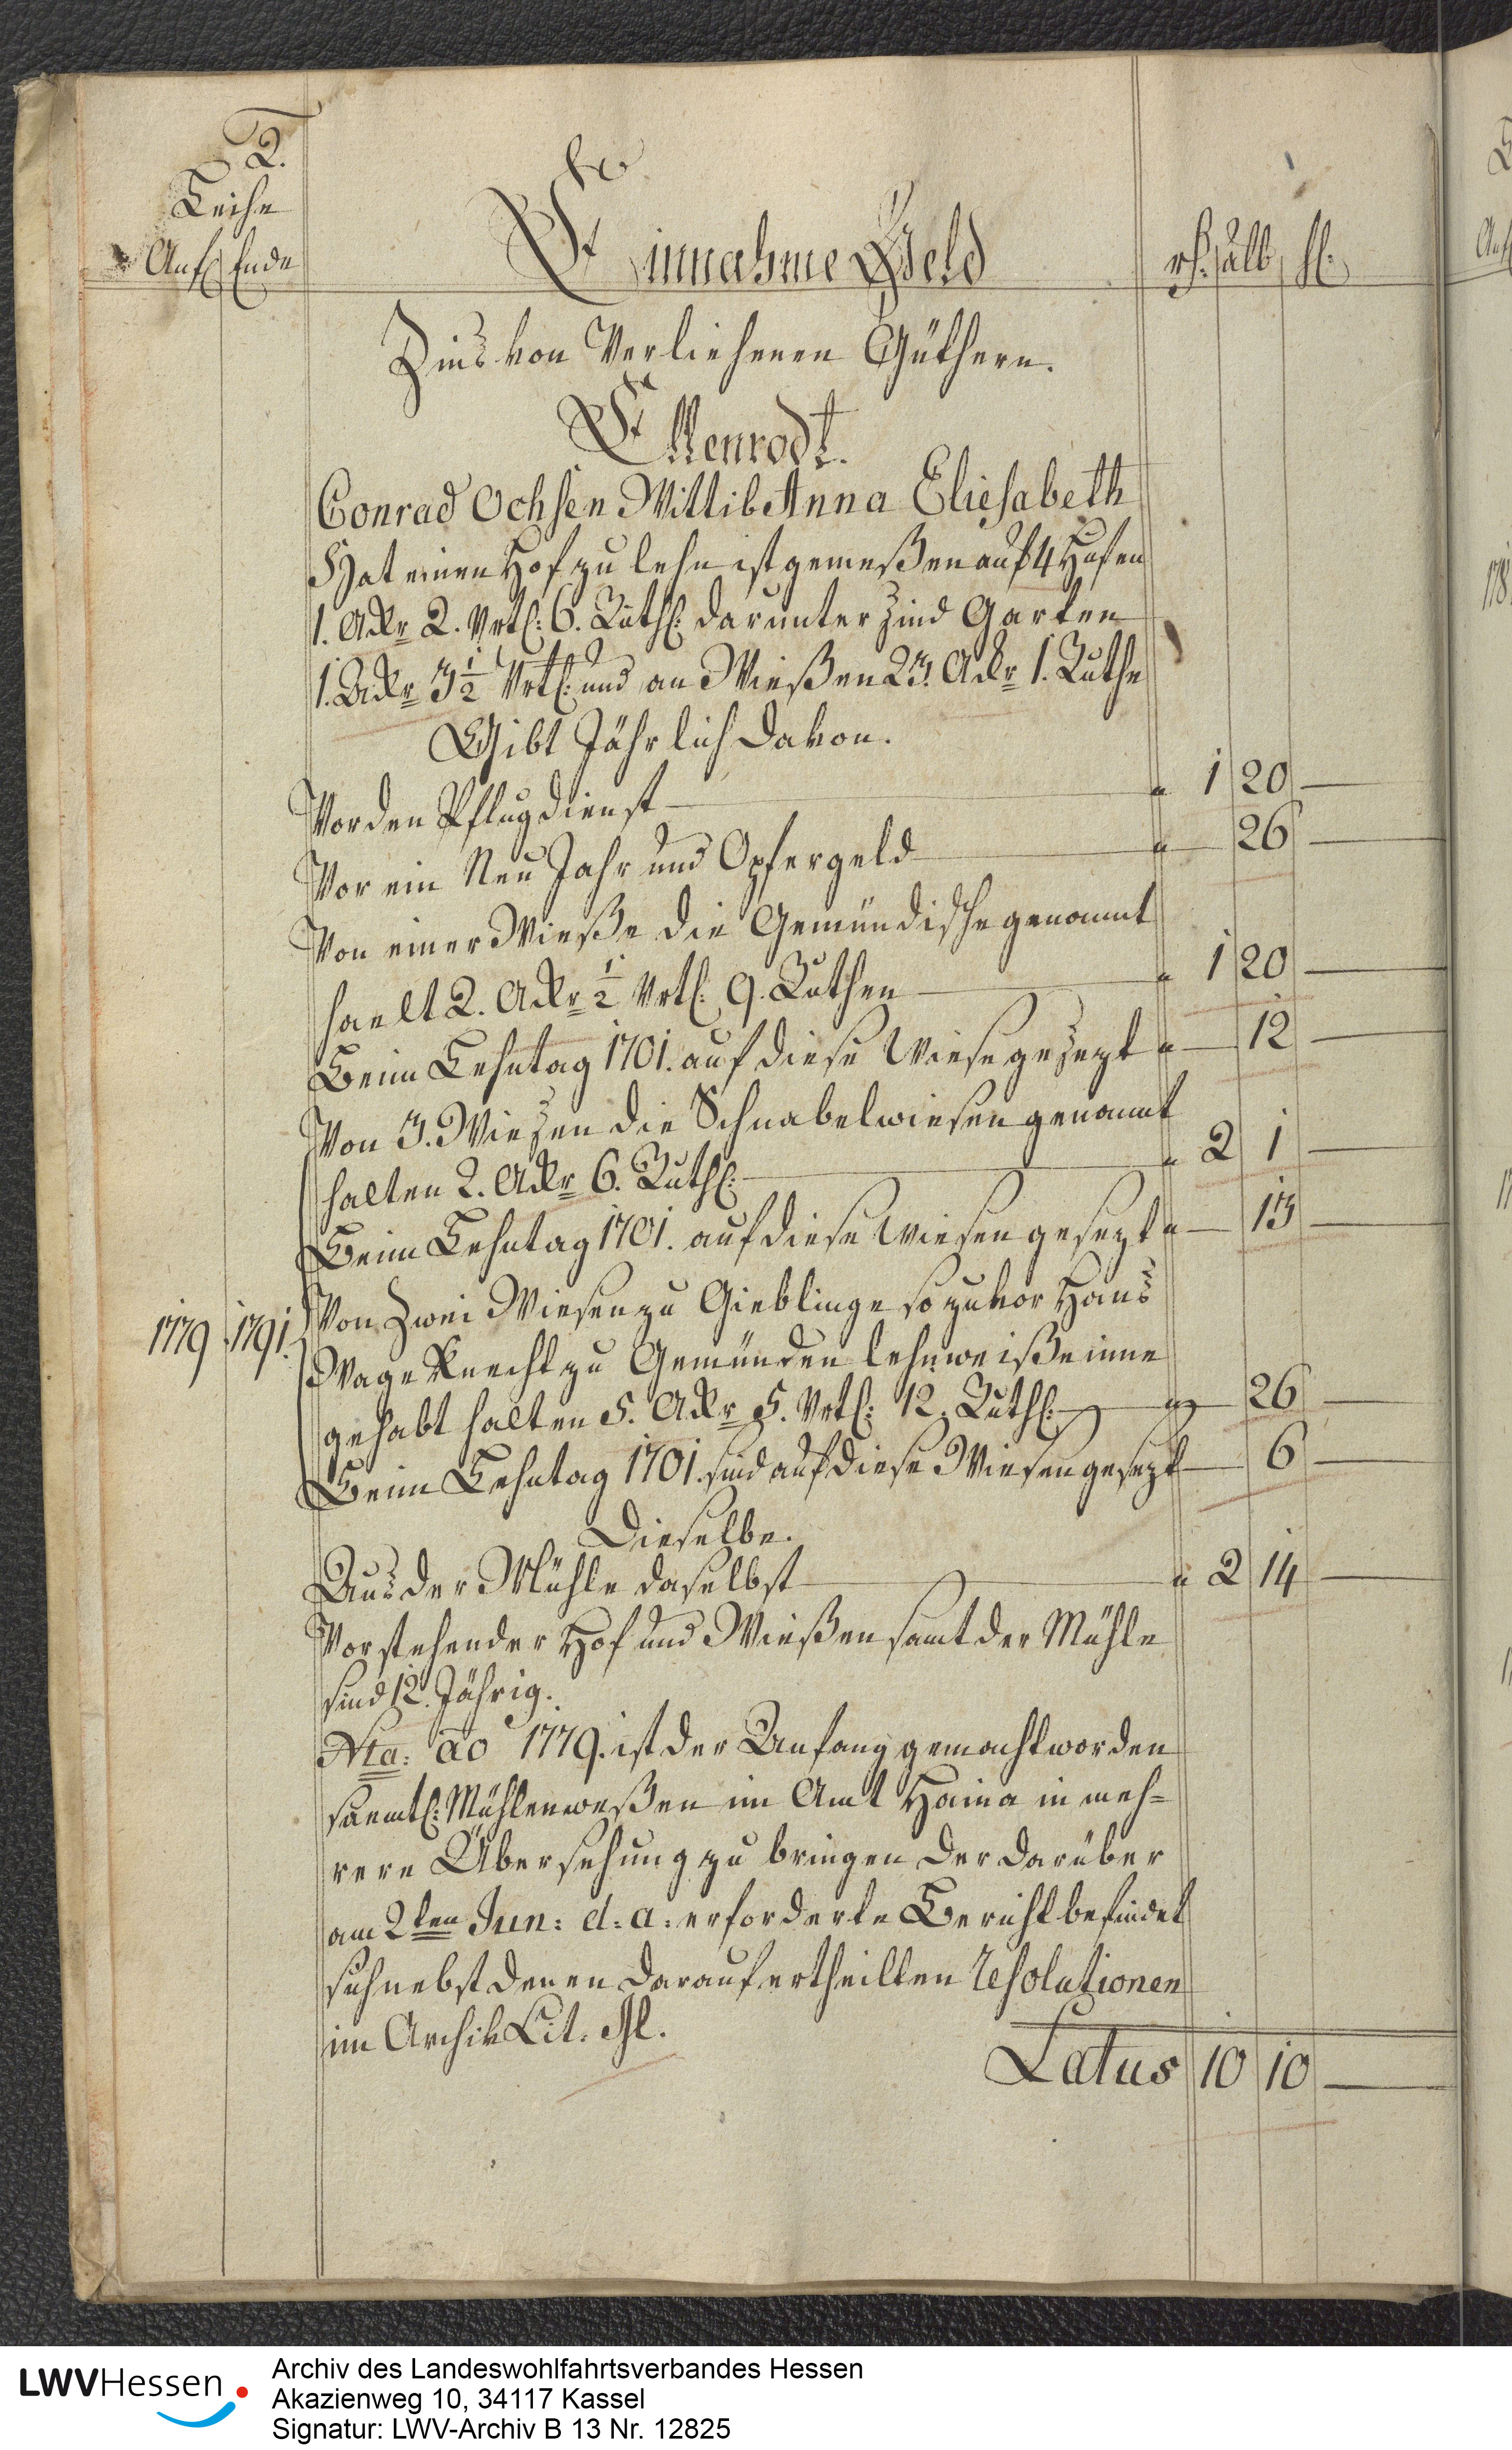 2.
Leihe
Anf: Ende
Einnahme Geld
rh: alb hl:
Zins von Verliehenen Güthern.
Ellenrodt.
Conrad Ochsen Wittib Anna Eliesabeth
Hat einen Hof zu lehn ist gemeßen auf 4 Hufen
1. Akr 2. Vrtl: 6. Ruth: darunter sind Garten
1. Akr 3 1/2 Vrtl: und an Wießen 23. Akr 1. Ruthe
Gibt Jährlich davon.
Vor den Pflugdienst " 1 20 —
Vor ein Neu Jahr und Opfergeld " — 26 —
Von einer Wieße die Gemündische genannt
haelt 2. Akr 1/2 Vrtl: 9. Ruthen " 1 20 —
Beim Lehntag 1701. auf diese Wiese gesezt " — 12 —
Von 3. Wiesen die Schnabelwiesen genannt
halten 2. Akr 6. Ruth: " 2 1 —
Beim Lehntag 1701. auf diese Wiesen gesezt " — 13 —
Von Zwei Wiesen zu Gieblinge so zuvor Hans
1779 1791.
Wageknecht zu Gemünden lehnweiße inne
gehabt halten 5. Akr 5. Vrtl: 12. Ruth: " — 26 —
Beim Lehntag 1701. sind auf diese Wiesen gesezt — 6 —
Dieselbe.
Aus der Mühle daselbst " 2 14 —
Vorstehender Hof und Wießen samt der Mühle
sind 12. Jährig.
Nta: ao 1779. ist der Anfang gemacht worden
saemtl: Mühlenweßen im Amt Haina in meh=
rere Übersehung zu bringen der darüber
am 2ten Jun: d: a: erforderte Bericht befindet
sich nebst denen darauf ertheilten Resolutionen
im Archiv Lit: M.
Latus 10 10 —
LWVHessen
Archiv des Landeswohlfahrtsverbandes Hessen
Akazienweg 10, 34117 Kassel
Signatur: LWV-Archiv B 13 Nr. 12825